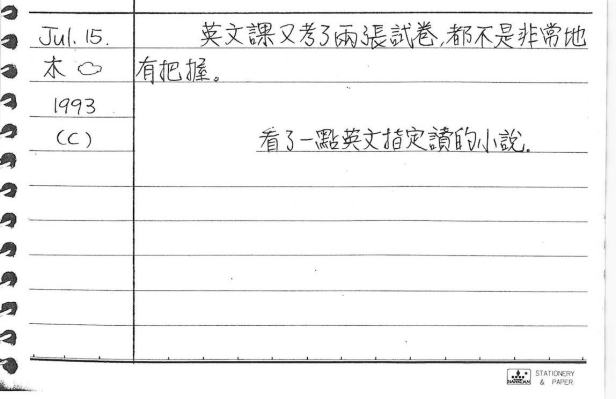 Jul. 15. 英文課又考了兩張試卷,都不是非常地
木 有把握。
1993
(C) 看了一點英文指定讀的小說.
STATIONERY
& PAPER